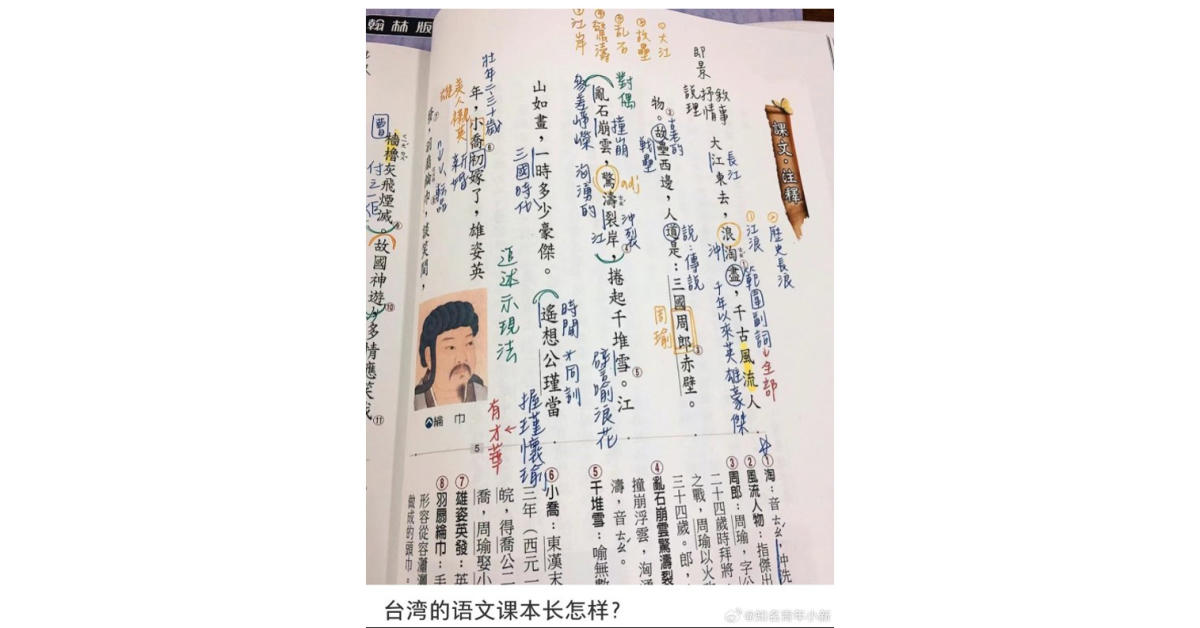 翰林版
課文·注釋
①大江
②故壘
③亂石
④驚濤
⑤江岸
即景
敘事
抒情
說理
大江東去，浪淘盡，千古風流人
長江
①江浪
②歷史長浪
沖
範圍副詞
全部
千年以來英雄豪傑
物。故壘西邊，人道是：三國周郎赤壁。
舊的
戰壘
說：傳說
周瑜
亂石崩雲，驚濤裂岸，捲起千堆雪。江
對偶
撞崩
參差崢嶸
adj
洶湧的
沖裂
江
譬喻浪花
山如畫，一時多少豪傑。遙想公瑾當
三國時代
時間
不同訓
追述示現法
握瑾懷瑜
有才華
年，小喬初嫁了，雄姿英
壯年二、三十歲
美人襯英雄
新婚
發，羽扇綸巾，談笑間，
綸巾
5
曹
檣櫓灰飛煙滅。故國神遊，多情應笑我
付之一炬
①淘：音ㄊㄠˊ，沖洗
②風流人物：指傑出
③周郎：周瑜，字公
二十四歲時拜將
之戰，周瑜以火
三十四歲。郎，
④亂石崩雲驚濤裂
撞崩浮雲，洶湧
濤，音ㄊㄠˊ。
⑤千堆雪：喻無數
⑥小喬：東漢末
三年（西元一
皖，得喬公二
喬，周瑜娶小
⑦雄姿英發：英
⑧羽扇綸巾：手
形容從容瀟灑
做成的頭巾：
台湾的语文课本长怎样？
@知名青年小新